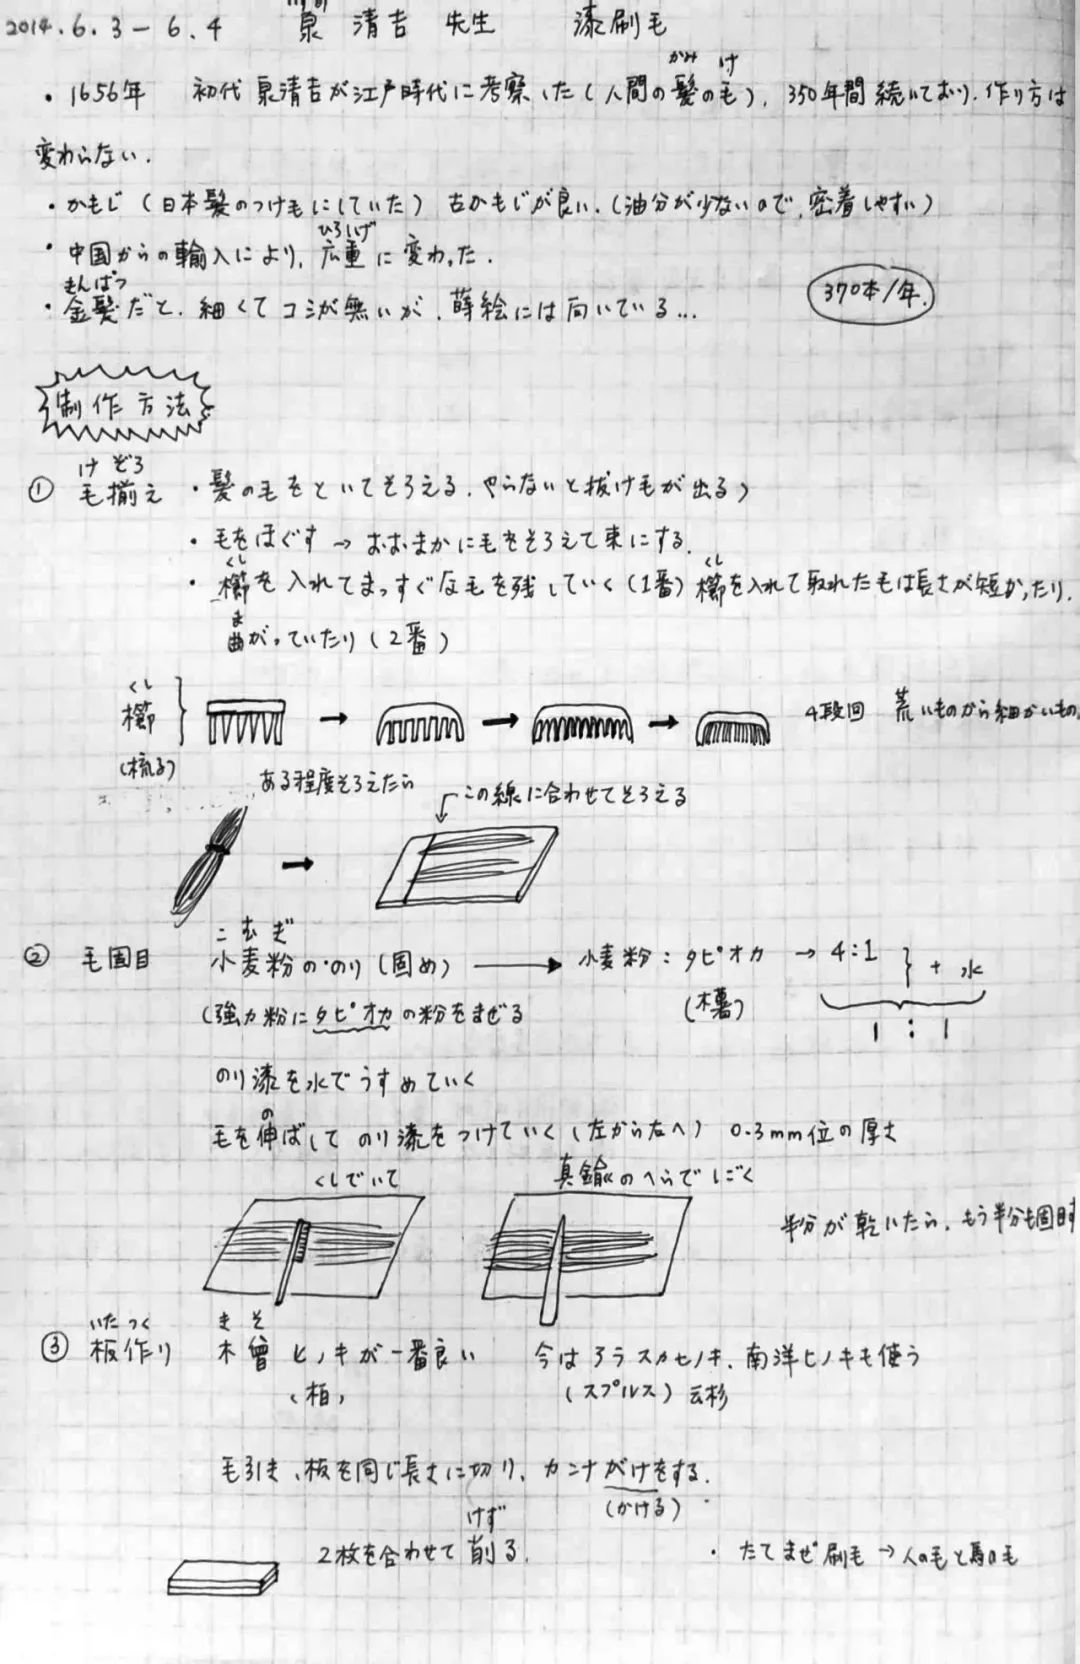 2014.6.3-6.4 泉 清吉 先生 漆刷毛
かみ け
・1656年 初代 泉清吉が江戸時代に考案した(人間の髪の毛)、350年間続いており、作り方は
変わらない.
・かもじ(日本髪のつけ毛にしていた) 古かもじが良い.(油分が少ないので、密着しやすい)
ひろしげ
・中国からの輸入により、広重に変わった.
きんぱつ
・金髪だと、細くてコシが無いが、蒔絵には向いている...
370本/年.
制作方法
け ぞろ
① 毛揃え ・髪の毛をといてそろえる.やらないと抜け毛が出る)
・毛をほぐす→おおまかに毛をそろえて束にする.
くし くし
・櫛を入れてまっすぐな毛を残していく(1番) 櫛を入れて取れた毛は長さが短かったり、
ま
曲がっていたり(2番)
くし
櫛
(梳る)
→ → → 4段回 荒いものから細かいもの.
ある程度そろえたら
この線に合わせてそろえる
こ む ぎ
② 毛固目 小麦粉の・のり(固め) → 小麦粉:タピオカ → 4:1 } + 水
(木薯)
1 : 1
(強力粉にタピオカの粉をまぜる
のり漆を水でうすめていく
の
毛を伸ばして のり漆をつけていく(左から右へ) 0.3mm位の厚さ
くしでいて
真鍮のへらでしごく
半分が乾いたら、もう半分も固目す
いた つく き そ
③ 板作り 木曾 ヒノキが一番良い 今はアラスカヒノキ、南洋ヒノキも使う
(柏)
(スプルス) 云杉
毛引き、板を同じ長さに切り、カンナがけをする.
(かける)
けず
2枚を合わせて削る.
・たてまぜ刷毛→人の毛と馬の毛